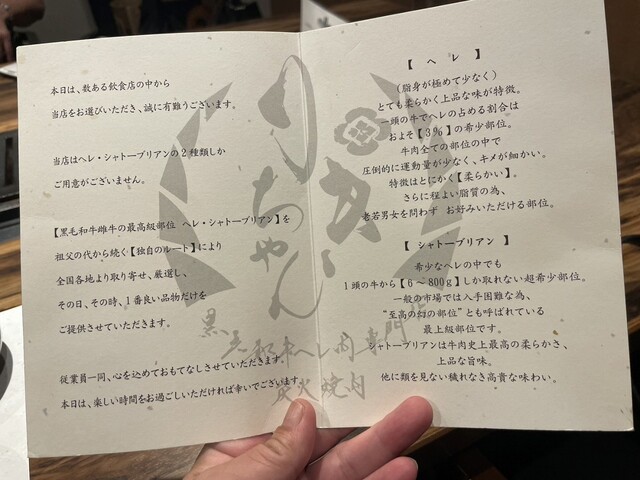 本日は、数ある飲食店の中から
当店をお選びいただき、誠に有難うございます。
当店はヘレ・シャトーブリアンの2種類しか
ご用意がございません。
【黒毛和牛雌牛の最高級部位 ヘレ・シャトーブリアン】を
祖父の代から続く【独自のルート】により
全国各地より取り寄せ、厳選し、
その日、その時、1番良い品物だけを
ご提供させていただきます。
従業員一同、心を込めておもてなしさせていただきます。
本日は、楽しい時間をお過ごしいただければ幸いでございます。
【 ヘ レ 】
(脂身が極めて少なく)
とても柔らかく上品な味が特徴。
一頭の牛でヘレの占める割合は
およそ【3%】の希少部位。
牛肉全ての部位の中で
圧倒的に運動量が少なく、キメが細かい。
特徴はとにかく【柔らかい】。
さらに程よい脂質の為、
老若男女を問わず お好みいただける部位。
【 シャトーブリアン 】
希少なヘレの中でも
1頭の牛から【6〜800g】しか取れない超希少部位。
一般の市場では入手困難な為、
“至高の幻の部位”とも呼ばれている
最上級部位です。
シャトーブリアンは牛肉史上最高の柔らかさ、
上品な旨味。
他に類を見ない穢れなき高貴な味わい。
りちゃん
黒毛和牛ヘレ肉専門店
炭火焼肉